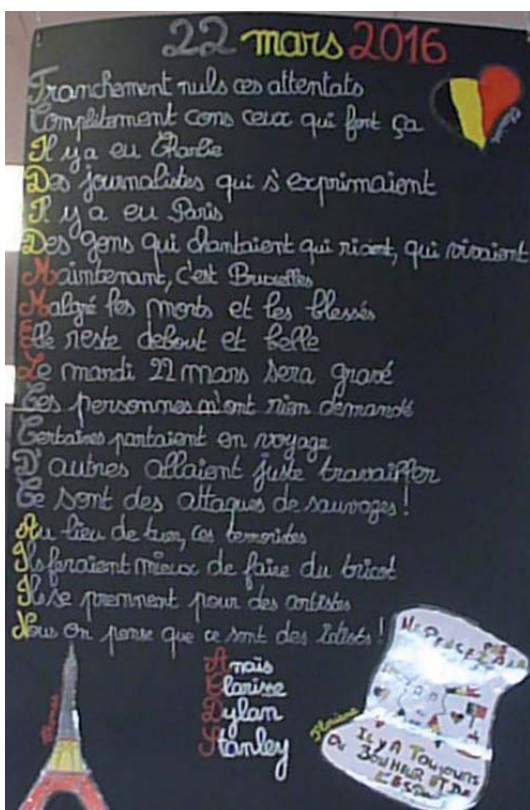 22 mars 2016
Franchement nuls ces attentats
Complètement cons ceux qui font ça
Il y a eu Charlie
Des journalistes qui s'exprimaient
Il y a eu Paris
Des gens qui chantaient qui riaient, qui vivaient
Maintenant, c'est Bruxelles
Malgré les morts et les blessés
Elle reste debout et belle
Le mardi 22 mars sera gravé
Ces personnes n'ont rien demandé
Certaines partaient en voyage
D'autres allaient juste travailler
Ce sont des attaques de sauvages !
Au lieu de tuer, ces terroristes
Ils feraient mieux de faire du tricot
Ils se prennent pour des artistes
Nous on pense que ce sont des idiots !
Anaïs
Clarisse
Dylan
Stanley
Floriane
Il y a toujours
du bonheur et de